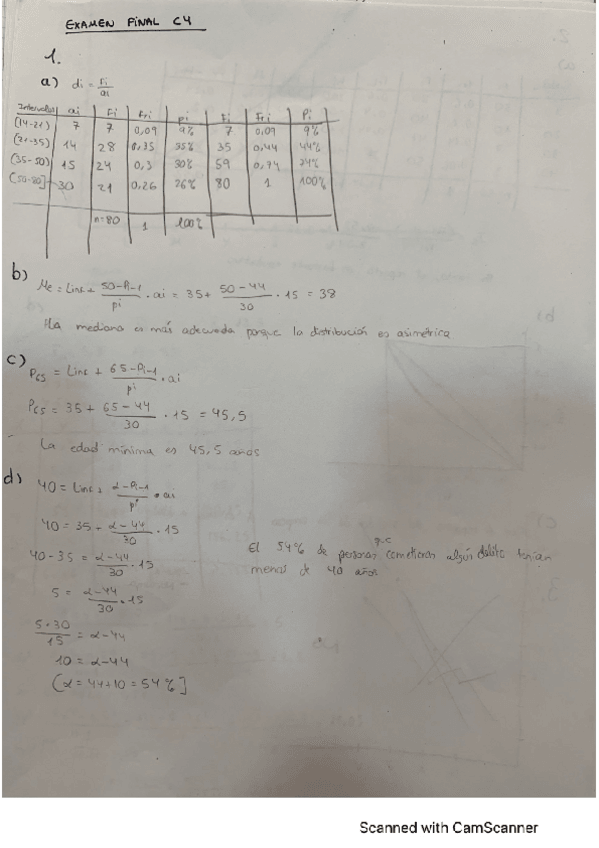 EXAMEN FINAL C4
1.
a) di = Fi/ai
Intervalos ai Fi Fri pi Fi Fri Pi
(14-21) 7 7 0,09 9% 7 0,09 9%
(21-35) 14 28 0,35 35% 35 0,44 44%
(35-50) 15 24 0,3 30% 59 0,74 74%
(50-80] 30 21 0,26 26% 80 1 100%
n=80 1 100%
b) Me = Linf + 50-Pi-1/pi · ai = 35+ 50-44/30 · 15 = 38
La mediana es más adecuada porque la distribución es asimétrica
c) P65 = Linf + 65-Pi-1/pi · ai
P65 = 35 + 65-44/30 · 15 = 45,5
La edad mínima es 45,5 años
d) 40 = Linf + α-Pi-1/pi · ai
40 = 35 - α-44/30 · 15
40-35 = α-44/30 · 15
5 = α-44/30 · 15
5·30/15 = α-44
10 = α-44
[α = 44+10 = 54%]
El 54% de personas q.c cometieron algún delito tenían
menos de 40 años
Scanned with CamScanner